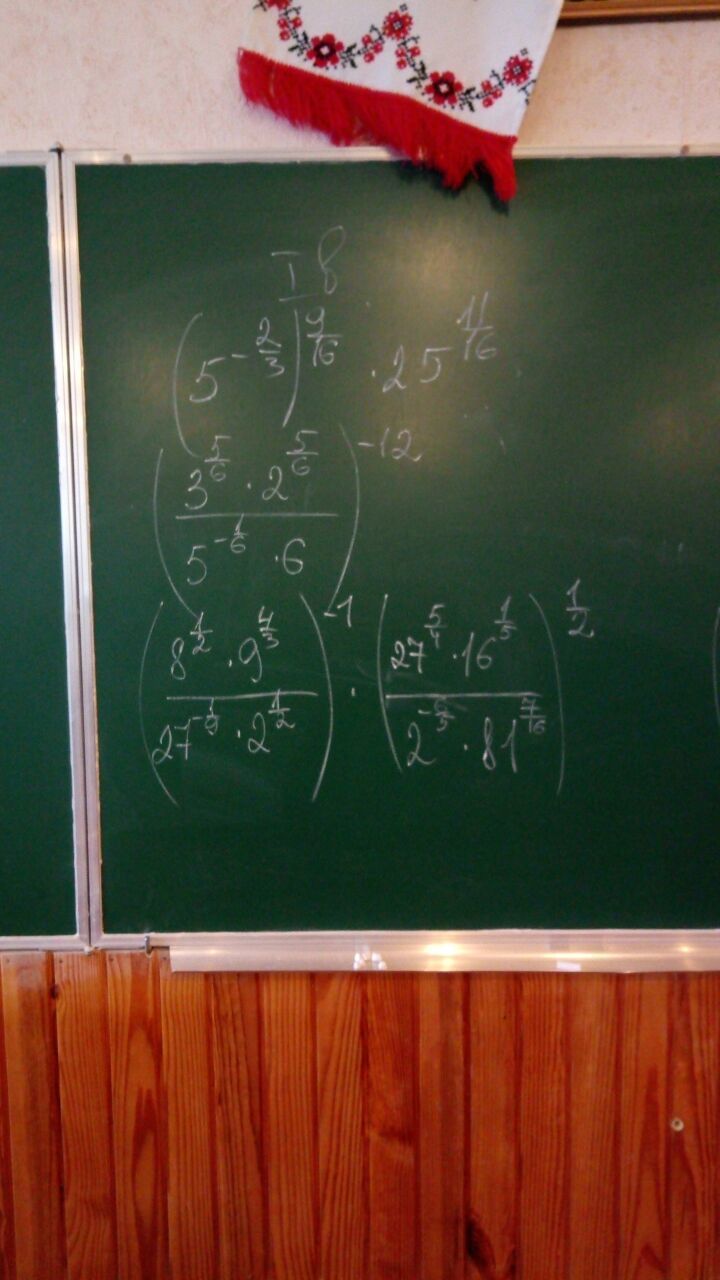 I в
(5^{-\frac{2}{3}})^{\frac{9}{16}} · 25^{\frac{11}{16}}
(\frac{3^{\frac{5}{6}} · 2^{\frac{5}{6}}}{5^{-\frac{1}{6}} · 6})^{-12}
(\frac{8^{\frac{1}{2}} · 9^{\frac{4}{3}}}{27^{-\frac{1}{9}} · 2^{\frac{1}{2}}})^{-1} · (\frac{27^{\frac{5}{4}} · 16^{\frac{1}{5}}}{2^{-\frac{6}{5}} · 81^{\frac{7}{16}}})^{\frac{1}{2}}